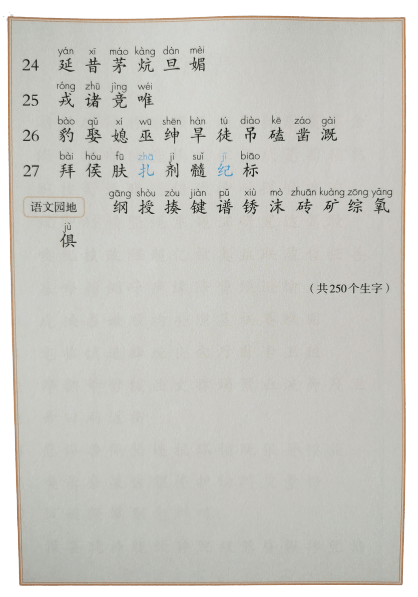 yán xī máo kàng dàn mèi
24 延 昔 茅 炕 旦 媚
róng zhū jìng wéi
25 戎 诸 竞 唯
bào qǔ xí wū shēn hàn tú diào kē záo gài
26 豹 娶 媳 巫 绅 旱 徒 吊 磕 凿 溉
bài hóu fū zhā jì suǐ jì biāo
27 拜 侯 肤 扎 剂 髓 纪 标
gāng shòu zòu jiàn pǔ xiù mò zhuān kuàng zōng yǎng
语文园地 纲 授 揍 键 谱 锈 沫 砖 矿 综 氧
jù
俱
（共250个生字）